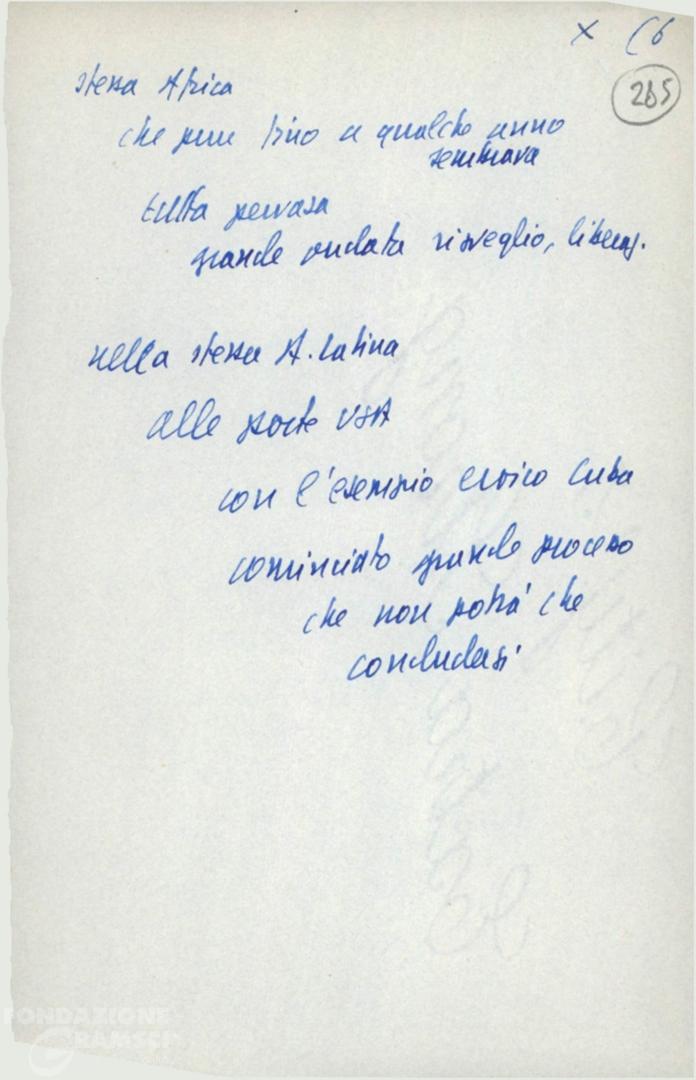 x (6
265
stessa Africa
che pure fino a qualche anno
sembrava
tutta pervasa
grande ondata risveglio, liberaz.
nella stessa A. Latina
alle porte USA
con l'esempio eroico Cuba
cominciato grande processo
che non potrà che
concludersi
FONDAZIONE
GRAMSCI